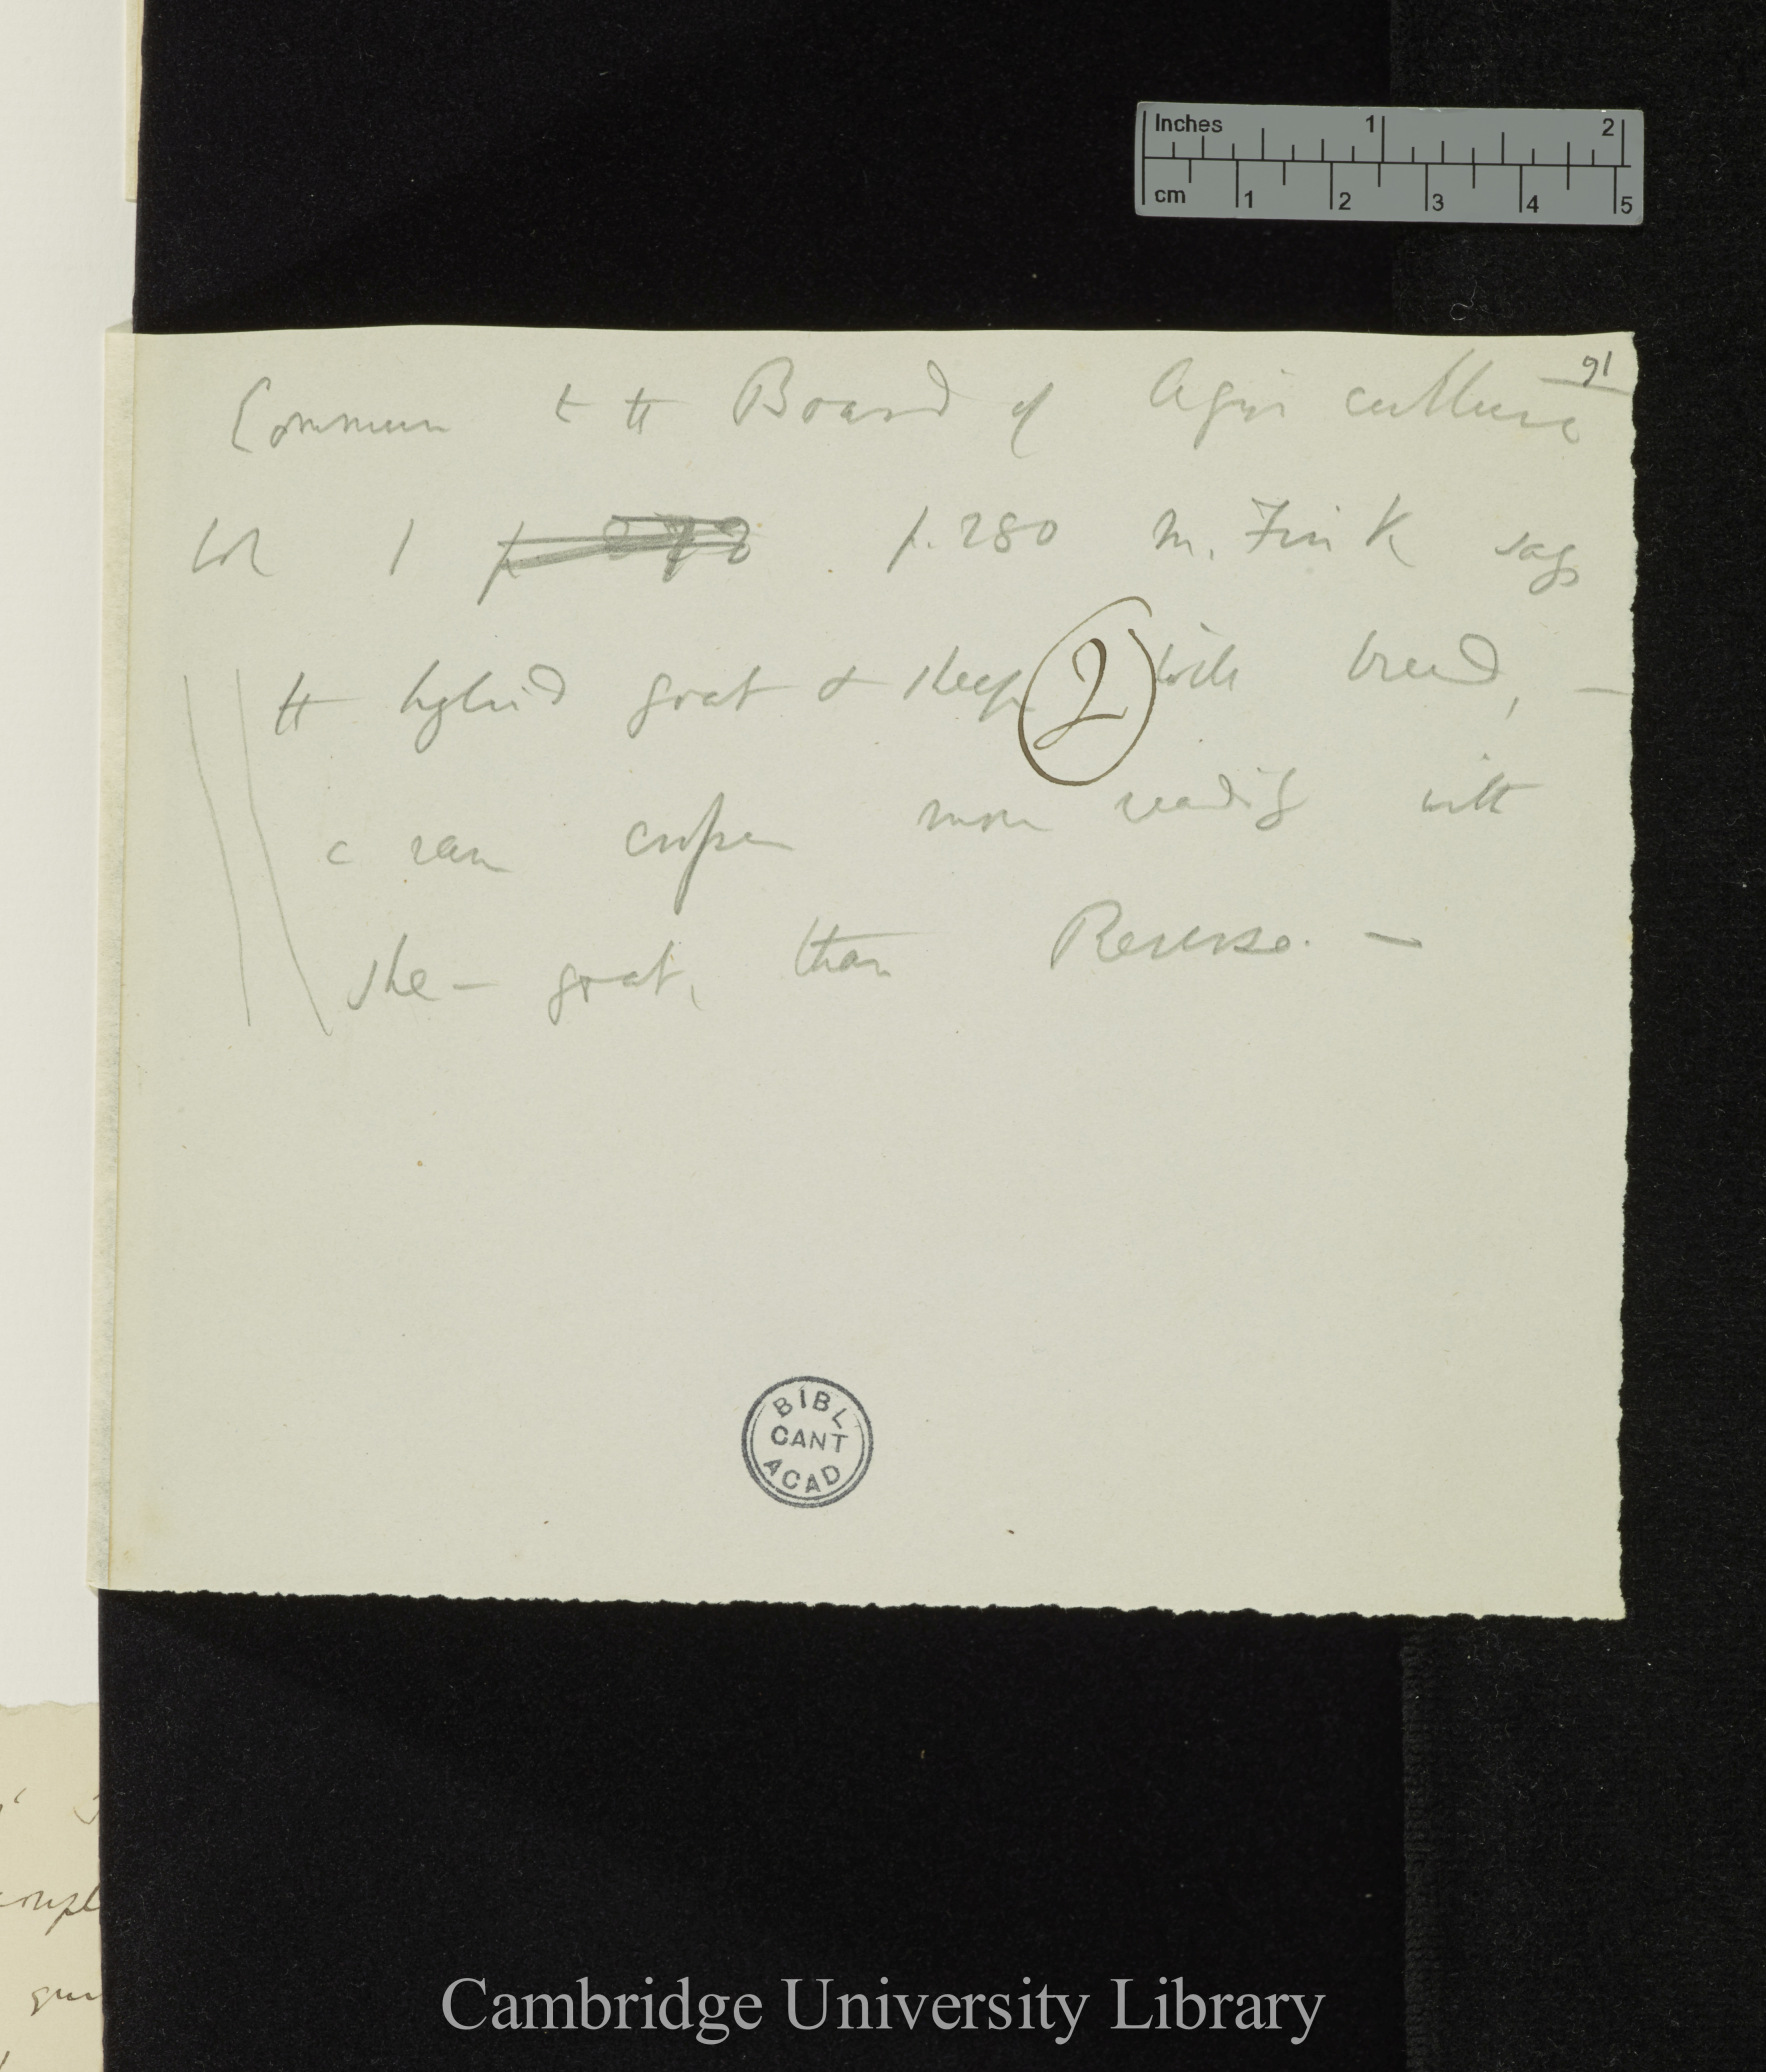 Inches 1 2
cm 1 2 3 4 5
91
Commun to the Board of Agriculture
Vol 1 p 272 p. 280 M. Fink says
the hybrid goat & sheep will breed, —
2
a ram couples more readily with
she - goat, than Reverse. —
BIBL
CANT
ACAD
Cambridge University Library